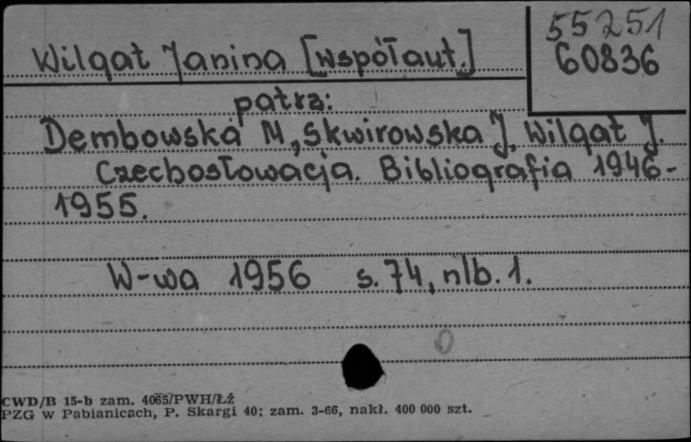 55251
Wilgat Janina [współaut.]
60836
patrz:
Dembowska M, Skwirowska J, Wilgat J.
Czechosłowacja. Bibliografia 1946-
1955.
W-wa 1956 s. 74, nlb. 1.
0
CWD/B 15-b zam. 4065/PWH/Łź
PZG w Pabianicach, P. Skargi 40; zam. 3-66, nakł. 400 000 szt.